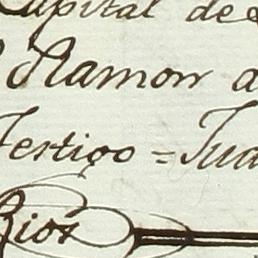 Capital de
Ramon
Testigo = Jua
Rios